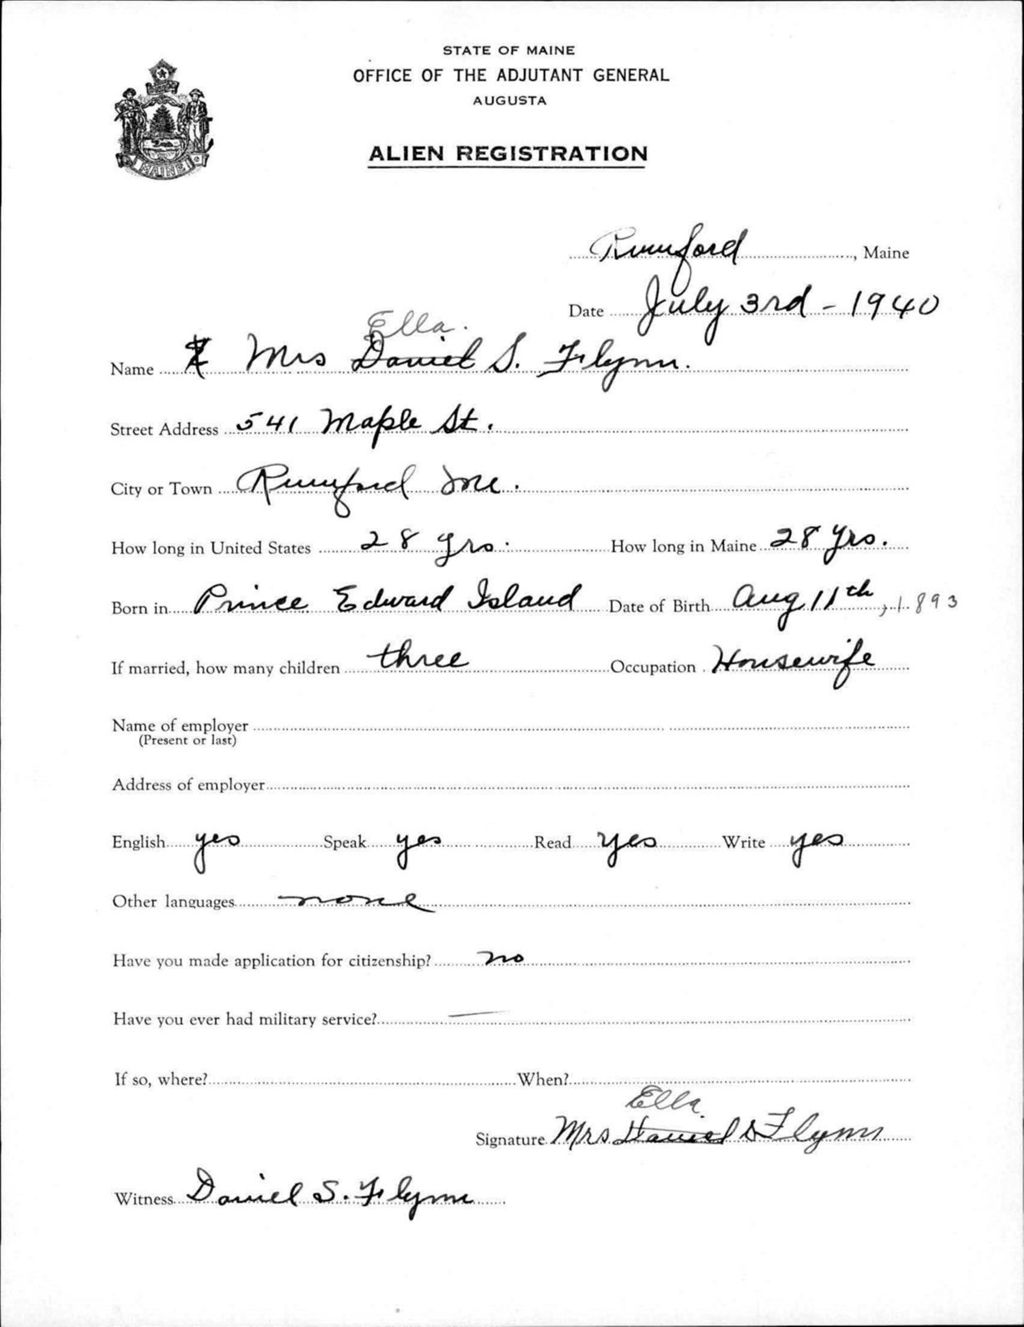 STATE OF MAINE
OFFICE OF THE ADJUTANT GENERAL
AUGUSTA
MAINE
ALIEN REGISTRATION
Rumford, Maine
Date July 3rd - 1940
Ella.
Name Mrs Daniel S. Flynn.
Street Address 541 Maple St.
City or Town Rumford Me.
How long in United States 28 yrs. How long in Maine 28 yrs.
Born in Prince Edward Island Date of Birth Aug 11th, 1893
If married, how many children three Occupation Housewife
Name of employer
(Present or last)
Address of employer
English yes Speak yes Read yes Write yes
Other languages none
Have you made application for citizenship? no
Have you ever had military service? —
If so, where? When?
Ella
Signature Mrs Daniel S Flynn
Witness Daniel S. Flynn